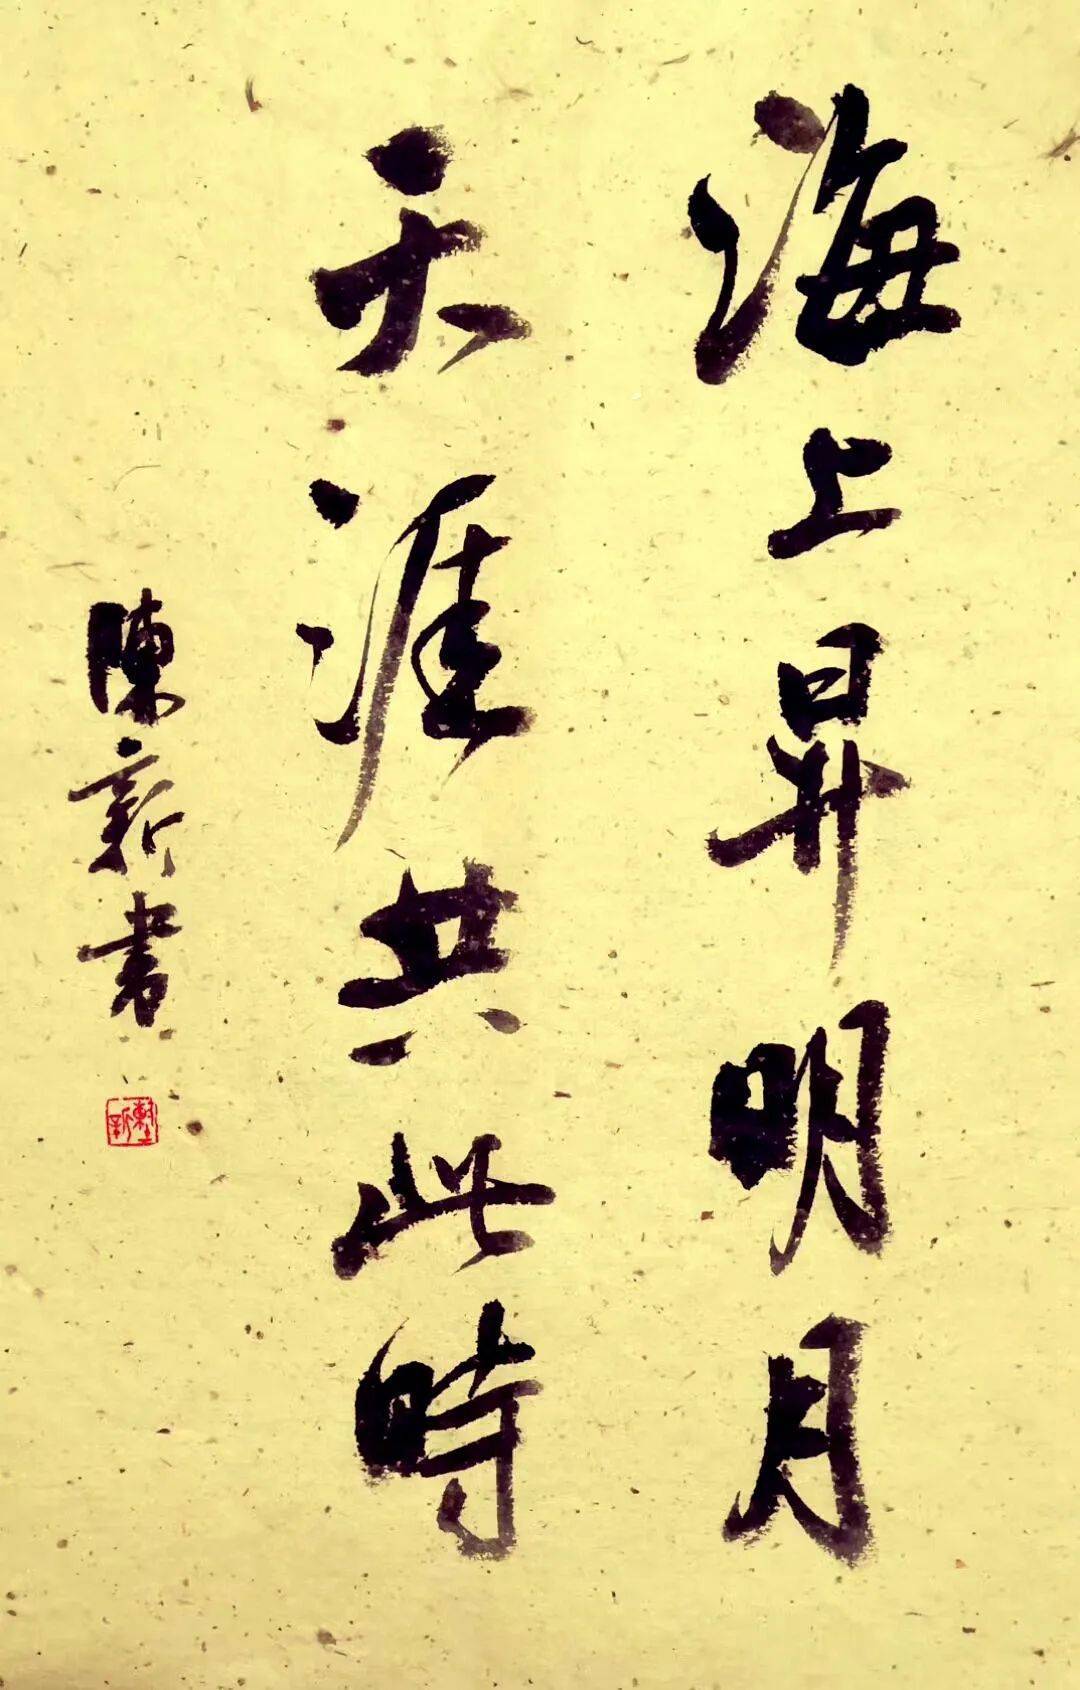 海上昇明月
天涯共此時
陳新書